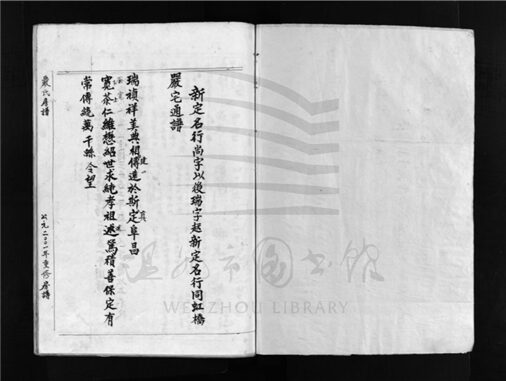 新定名行尚字以後瑞字起新定名行同虹橋
嚴宅通譜
瑞禎祥美興相傳遠於斯定阜昌
建一
真
寬恭仁維懋紹世永純孝祖遜篤積善保定有
常傳統萬千縣令望
嚴氏房譜
公元二〇一一年重修房譜
溫州市圖書館
WENZHOU LIBRARY